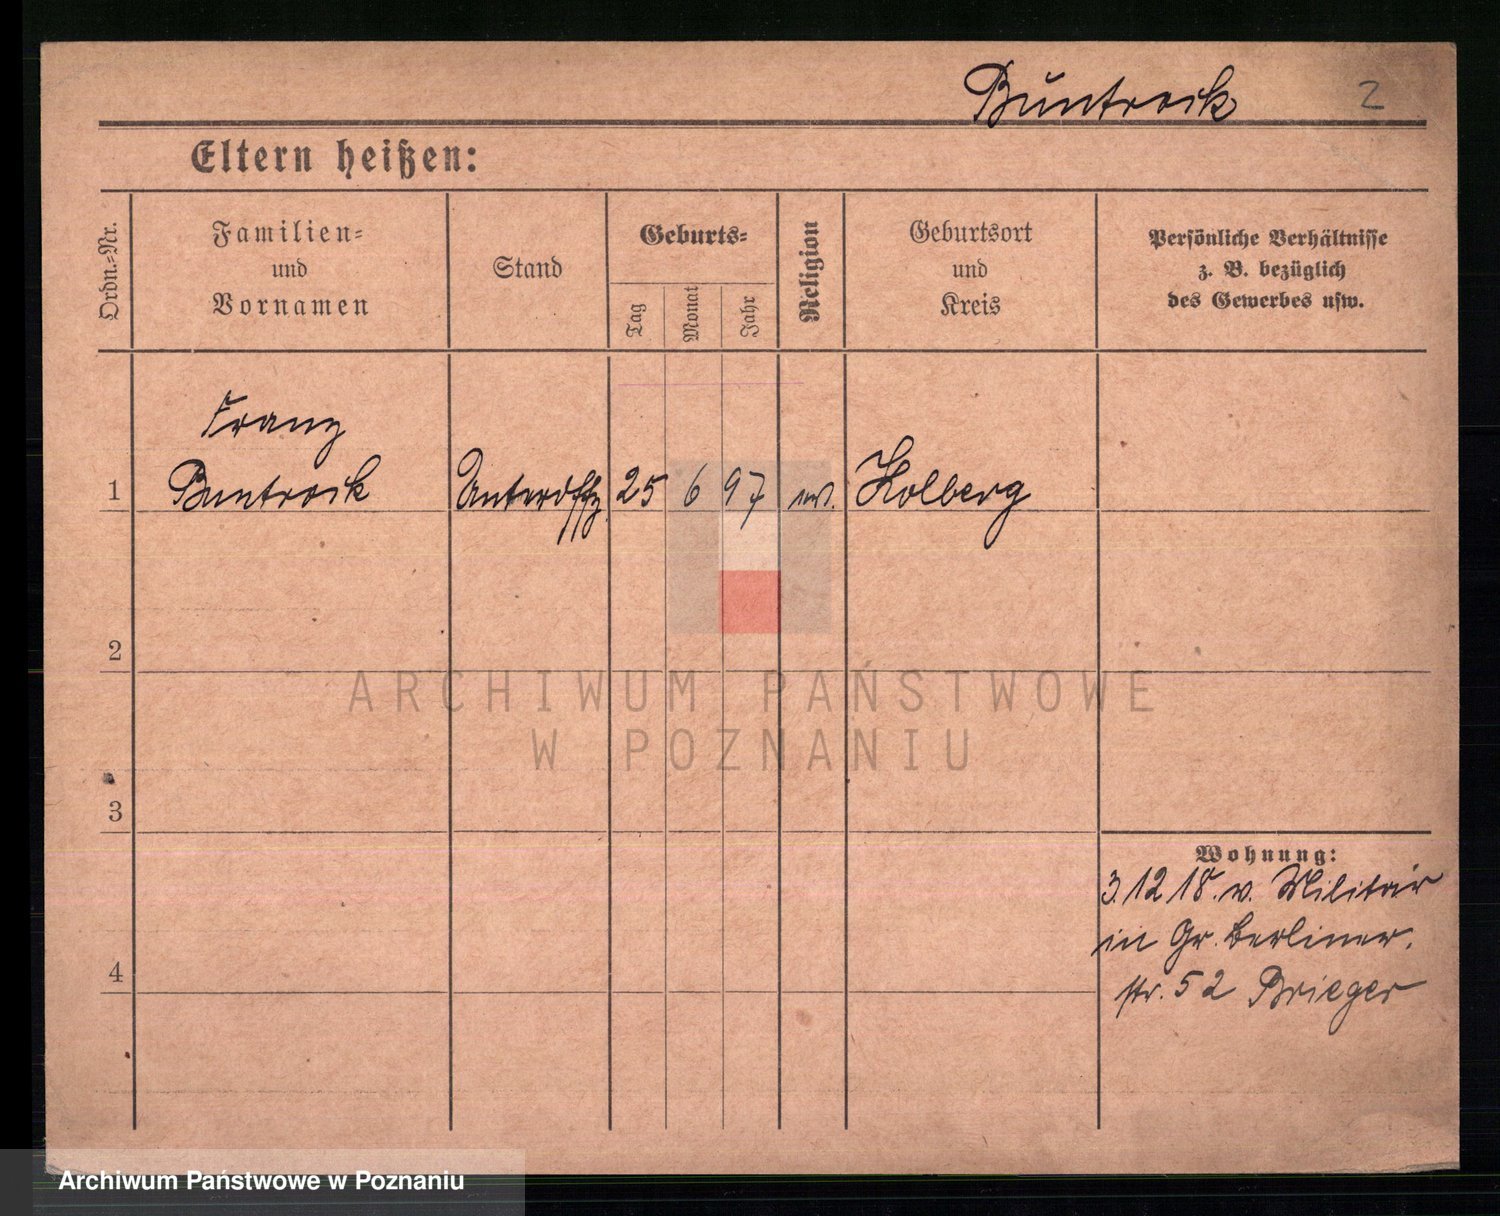 Buntrock 2
Eltern heißen:
Ordn.-Nr.
Familien-
und
Vornamen
Stand
Geburts-
Tag
Monat
Jahr
Religion
Geburtsort
und
Kreis
Persönliche Verhältnisse
z. B. bezüglich
des Gewerbes usw.
Franz
1 Buntrock Unteroffz. 25 6 97 ev. Kolberg
2
ARCHIWUM PAŃSTWOWE
W POZNANIU
3
Wohnung:
3.12 18. v. Militär
in Gr. Berliner.
4
str. 52 Brieger
Archiwum Państwowe w Poznaniu